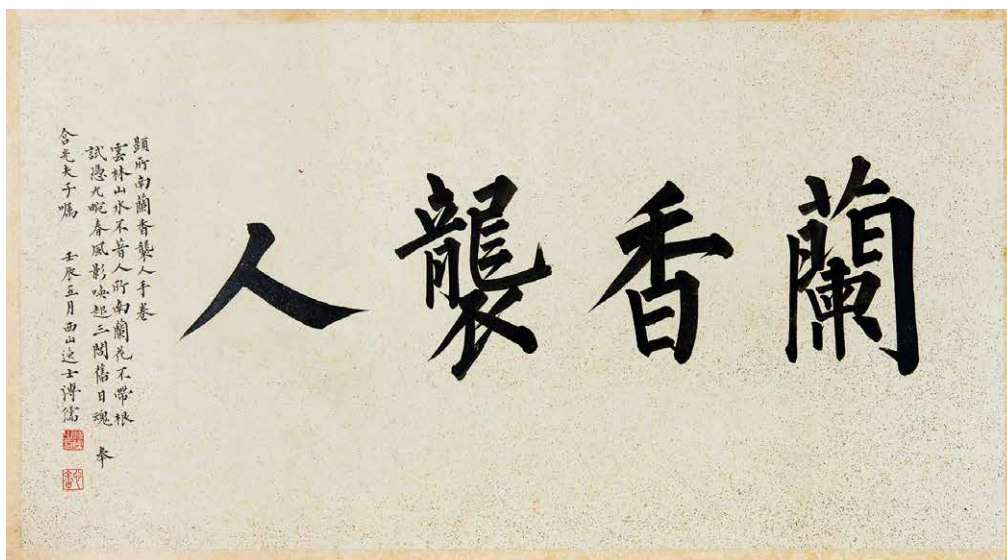 蘭香襲人
題所南蘭香襲人手卷
雲林山水不著人所南蘭花不帶根
試憑九畹春風影喚起三閭舊日魂 奉
含光夫子囑 壬辰五月西山逸士溥儒